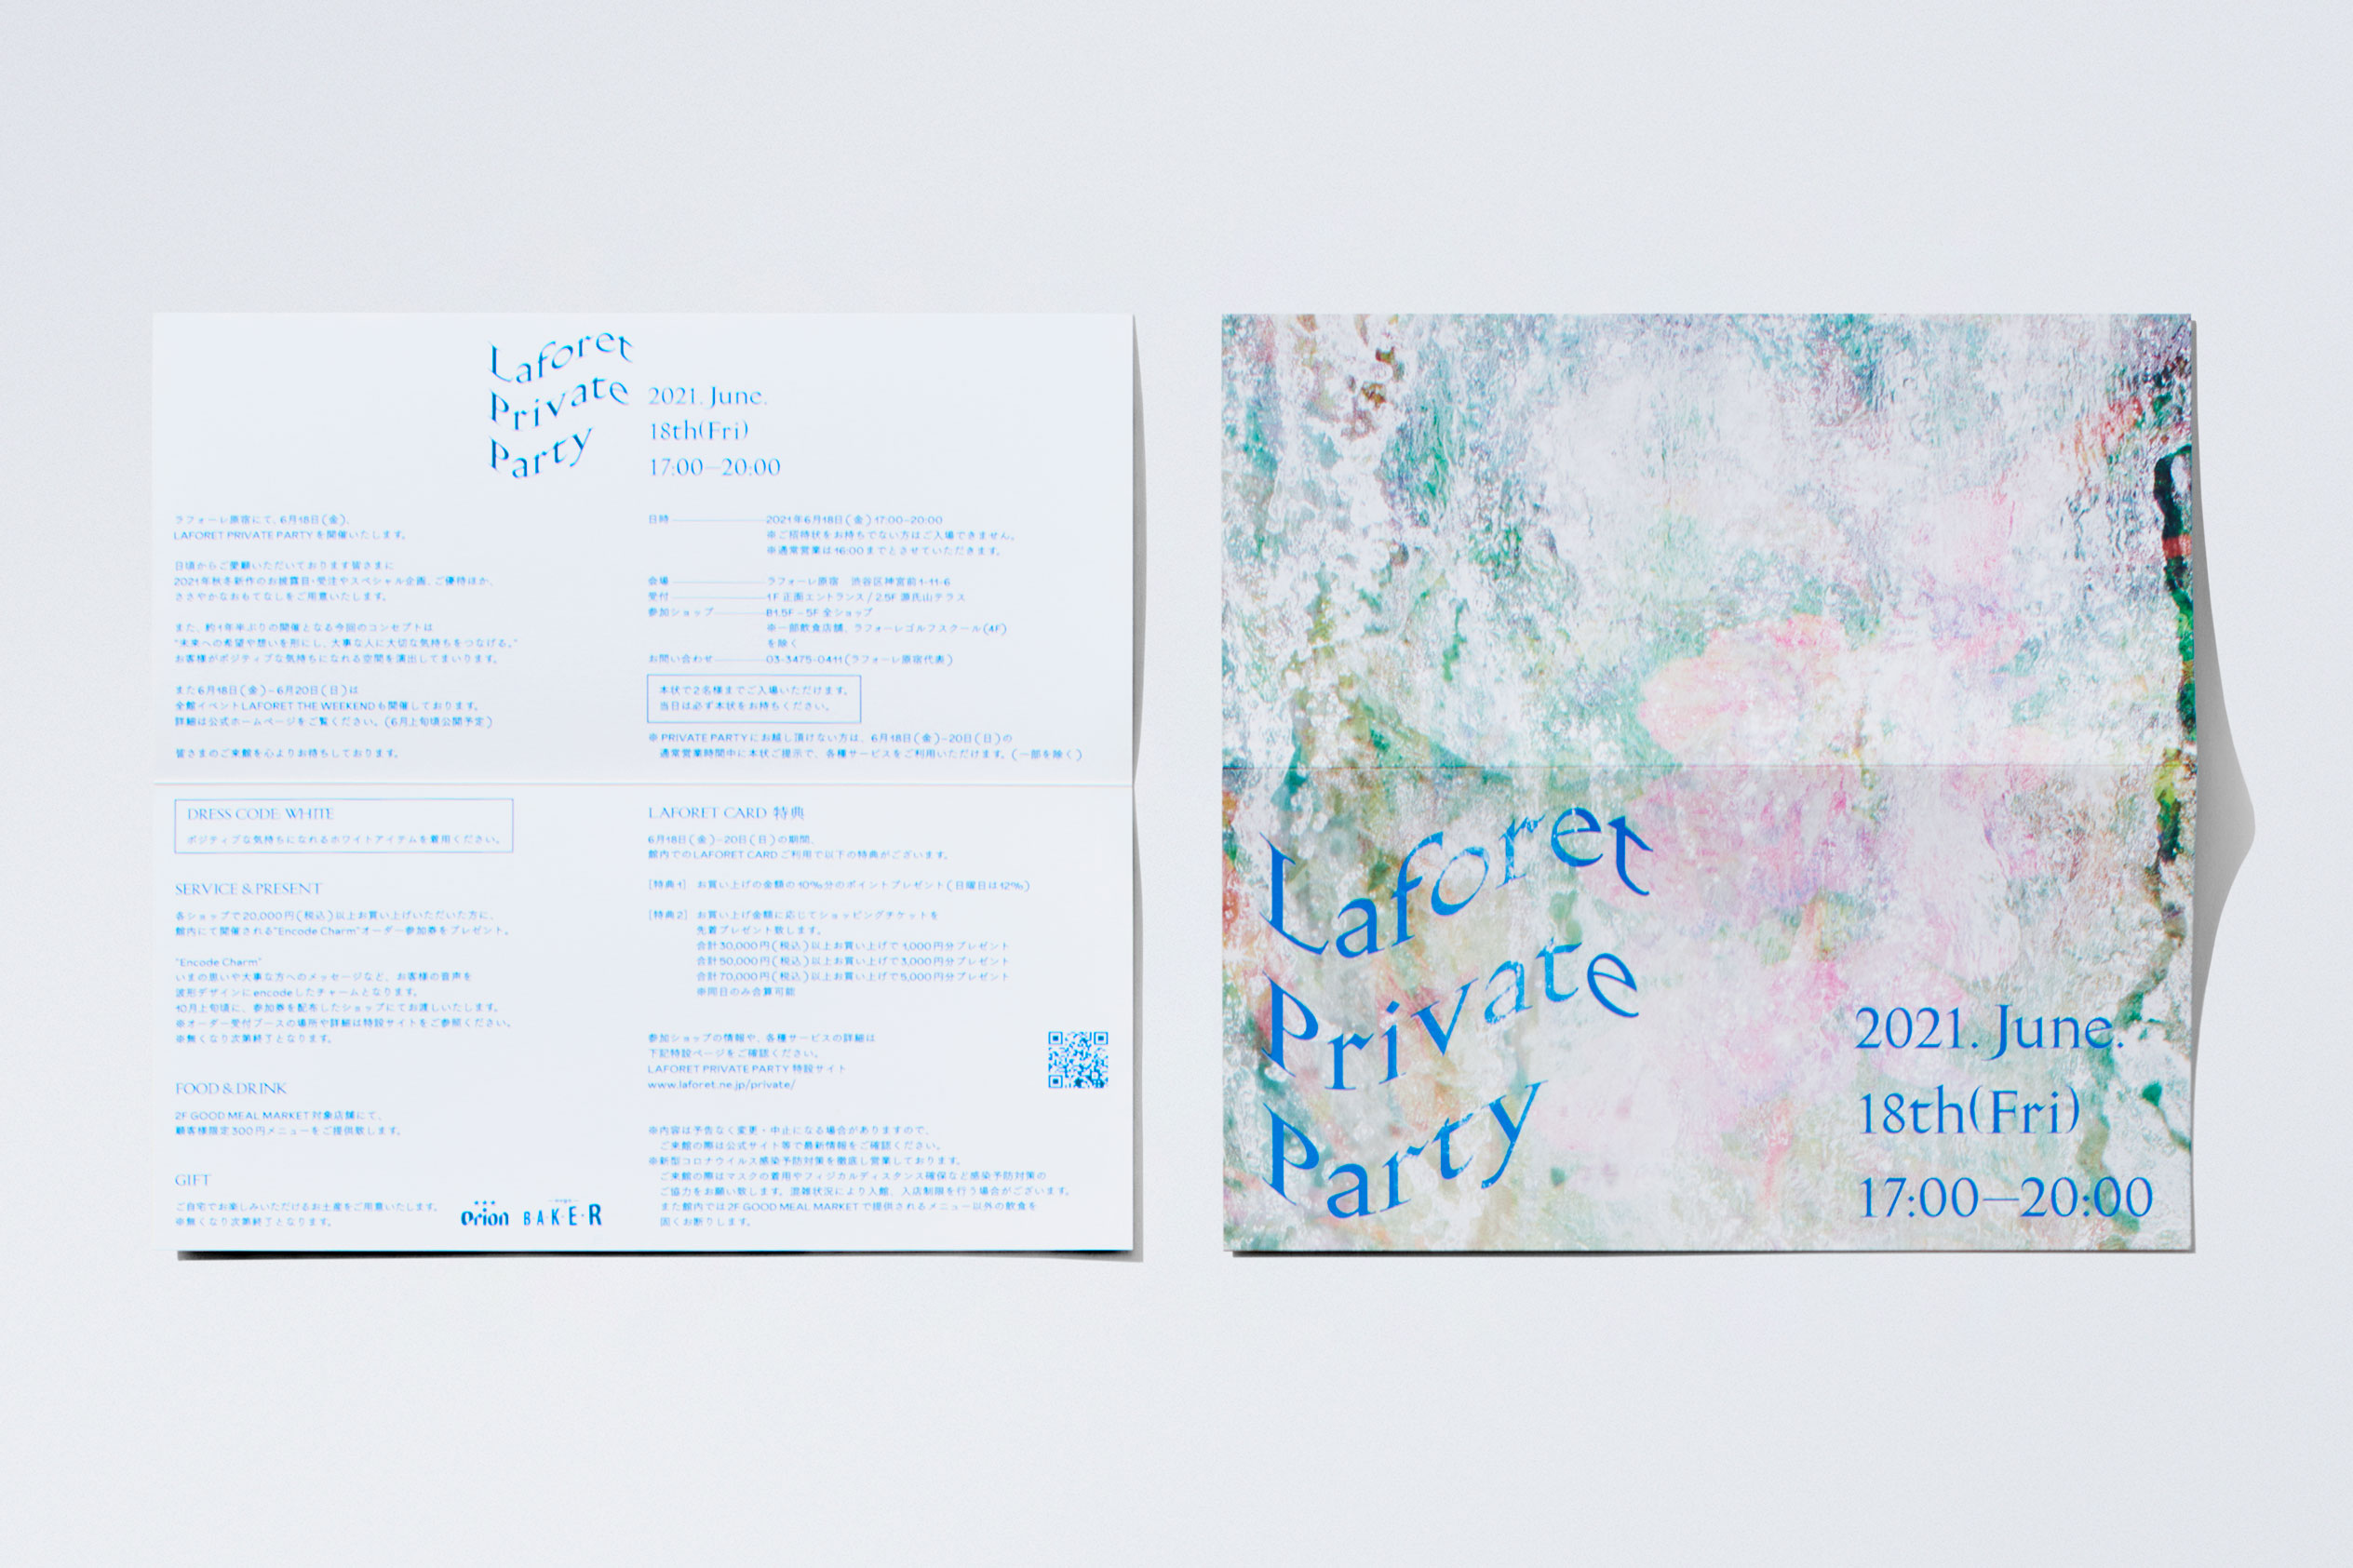 Laforet
Private
Party
2021. June.
18th(Fri)
17:00—20:00
ラフォーレ原宿にて、6月18日(金)、
LAFORET PRIVATE PARTYを開催いたします。
日頃からご愛顧いただいております皆さまに
2021年秋冬新作のお披露目・受注やスペシャル企画、ご優待ほか、
ささやかなおもてなしをご用意いたします。
また、約1年半ぶりの開催となる今回のコンセプトは
"未来への希望や想いを形にし、大事な人に大切な気持ちをつなげる。"
お客様がポジティブな気持ちになれる空間を演出してまいります。
また6月18日(金)–6月20日(日)は
全館イベントLAFORET THE WEEKENDも開催しております。
詳細は公式ホームページをご覧ください。(6月上旬頃公開予定)
皆さまのご来館を心よりお待ちしております。
日時 2021年6月18日(金)17:00–20:00
※ご招待状をお持ちでない方はご入場できません。
※通常営業は16:00までとさせていただきます。
会場 ラフォーレ原宿 渋谷区神宮前1-11-6
受付 1F 正面エントランス / 2.5F 源氏山テラス
参加ショップ B1.5F – 5F 全ショップ
※一部飲食店舗、ラフォーレゴルフスクール(4F)
を除く
お問い合わせ 03-3475-0411(ラフォーレ原宿代表)
本状で2名様までご入場いただけます。
当日は必ず本状をお持ちください。
※ PRIVATE PARTYにお越し頂けない方は、6月18日(金)–20日(日)の
通常営業時間中に本状ご提示で、各種サービスをご利用いただけます。(一部を除く)
DRESS CODE: WHITE
ポジティブな気持ちになれるホワイトアイテムを着用ください。
SERVICE & PRESENT
各ショップで20,000円(税込)以上お買い上げいただいた方に、
館内にて開催される"Encode Charm"オーダー参加券をプレゼント。
"Encode Charm"
いまの思いや大事な方へのメッセージなど、お客様の音声を
波形デザインにencodeしたチャームとなります。
10月上旬頃に、参加券を配布したショップにてお渡しいたします。
※オーダー受付ブースの場所や詳細は特設サイトをご参照ください。
※無くなり次第終了となります。
FOOD & DRINK
2F GOOD MEAL MARKET 対象店舗にて、
顧客様限定300円メニューをご提供致します。
GIFT
ご自宅でお楽しみいただけるお土産をご用意いたします。
※無くなり次第終了となります。
orion BAKER
LAFORET CARD 特典
6月18日(金)–20日(日)の期間、
館内でのLAFORET CARDご利用で以下の特典がございます。
[特典1] お買い上げの金額の10%分のポイントプレゼント(日曜日は12%)
[特典2] お買い上げ金額に応じてショッピングチケットを
先着プレゼント致します。
合計30,000円(税込)以上お買い上げで1,000円分プレゼント
合計50,000円(税込)以上お買い上げで3,000円分プレゼント
合計70,000円(税込)以上お買い上げで5,000円分プレゼント
※同日のみ合算可能
参加ショップの情報や、各種サービスの詳細は
下記特設ページをご確認ください。
LAFORET PRIVATE PARTY 特設サイト
www.laforet.ne.jp/private/
※内容は予告なく変更・中止になる場合がありますので、
ご来館の際は公式サイト等で最新情報をご確認ください。
※新型コロナウイルス感染予防対策を徹底し営業しております。
ご来館の際はマスクの着用やフィジカルディスタンス確保など感染予防対策の
ご協力をお願い致します。混雑状況により入館、入店制限を行う場合がございます。
また館内では2F GOOD MEAL MARKETで提供されるメニュー以外の飲食を
固くお断りします。
Laforet
Private
Party
2021. June.
18th(Fri)
17:00—20:00